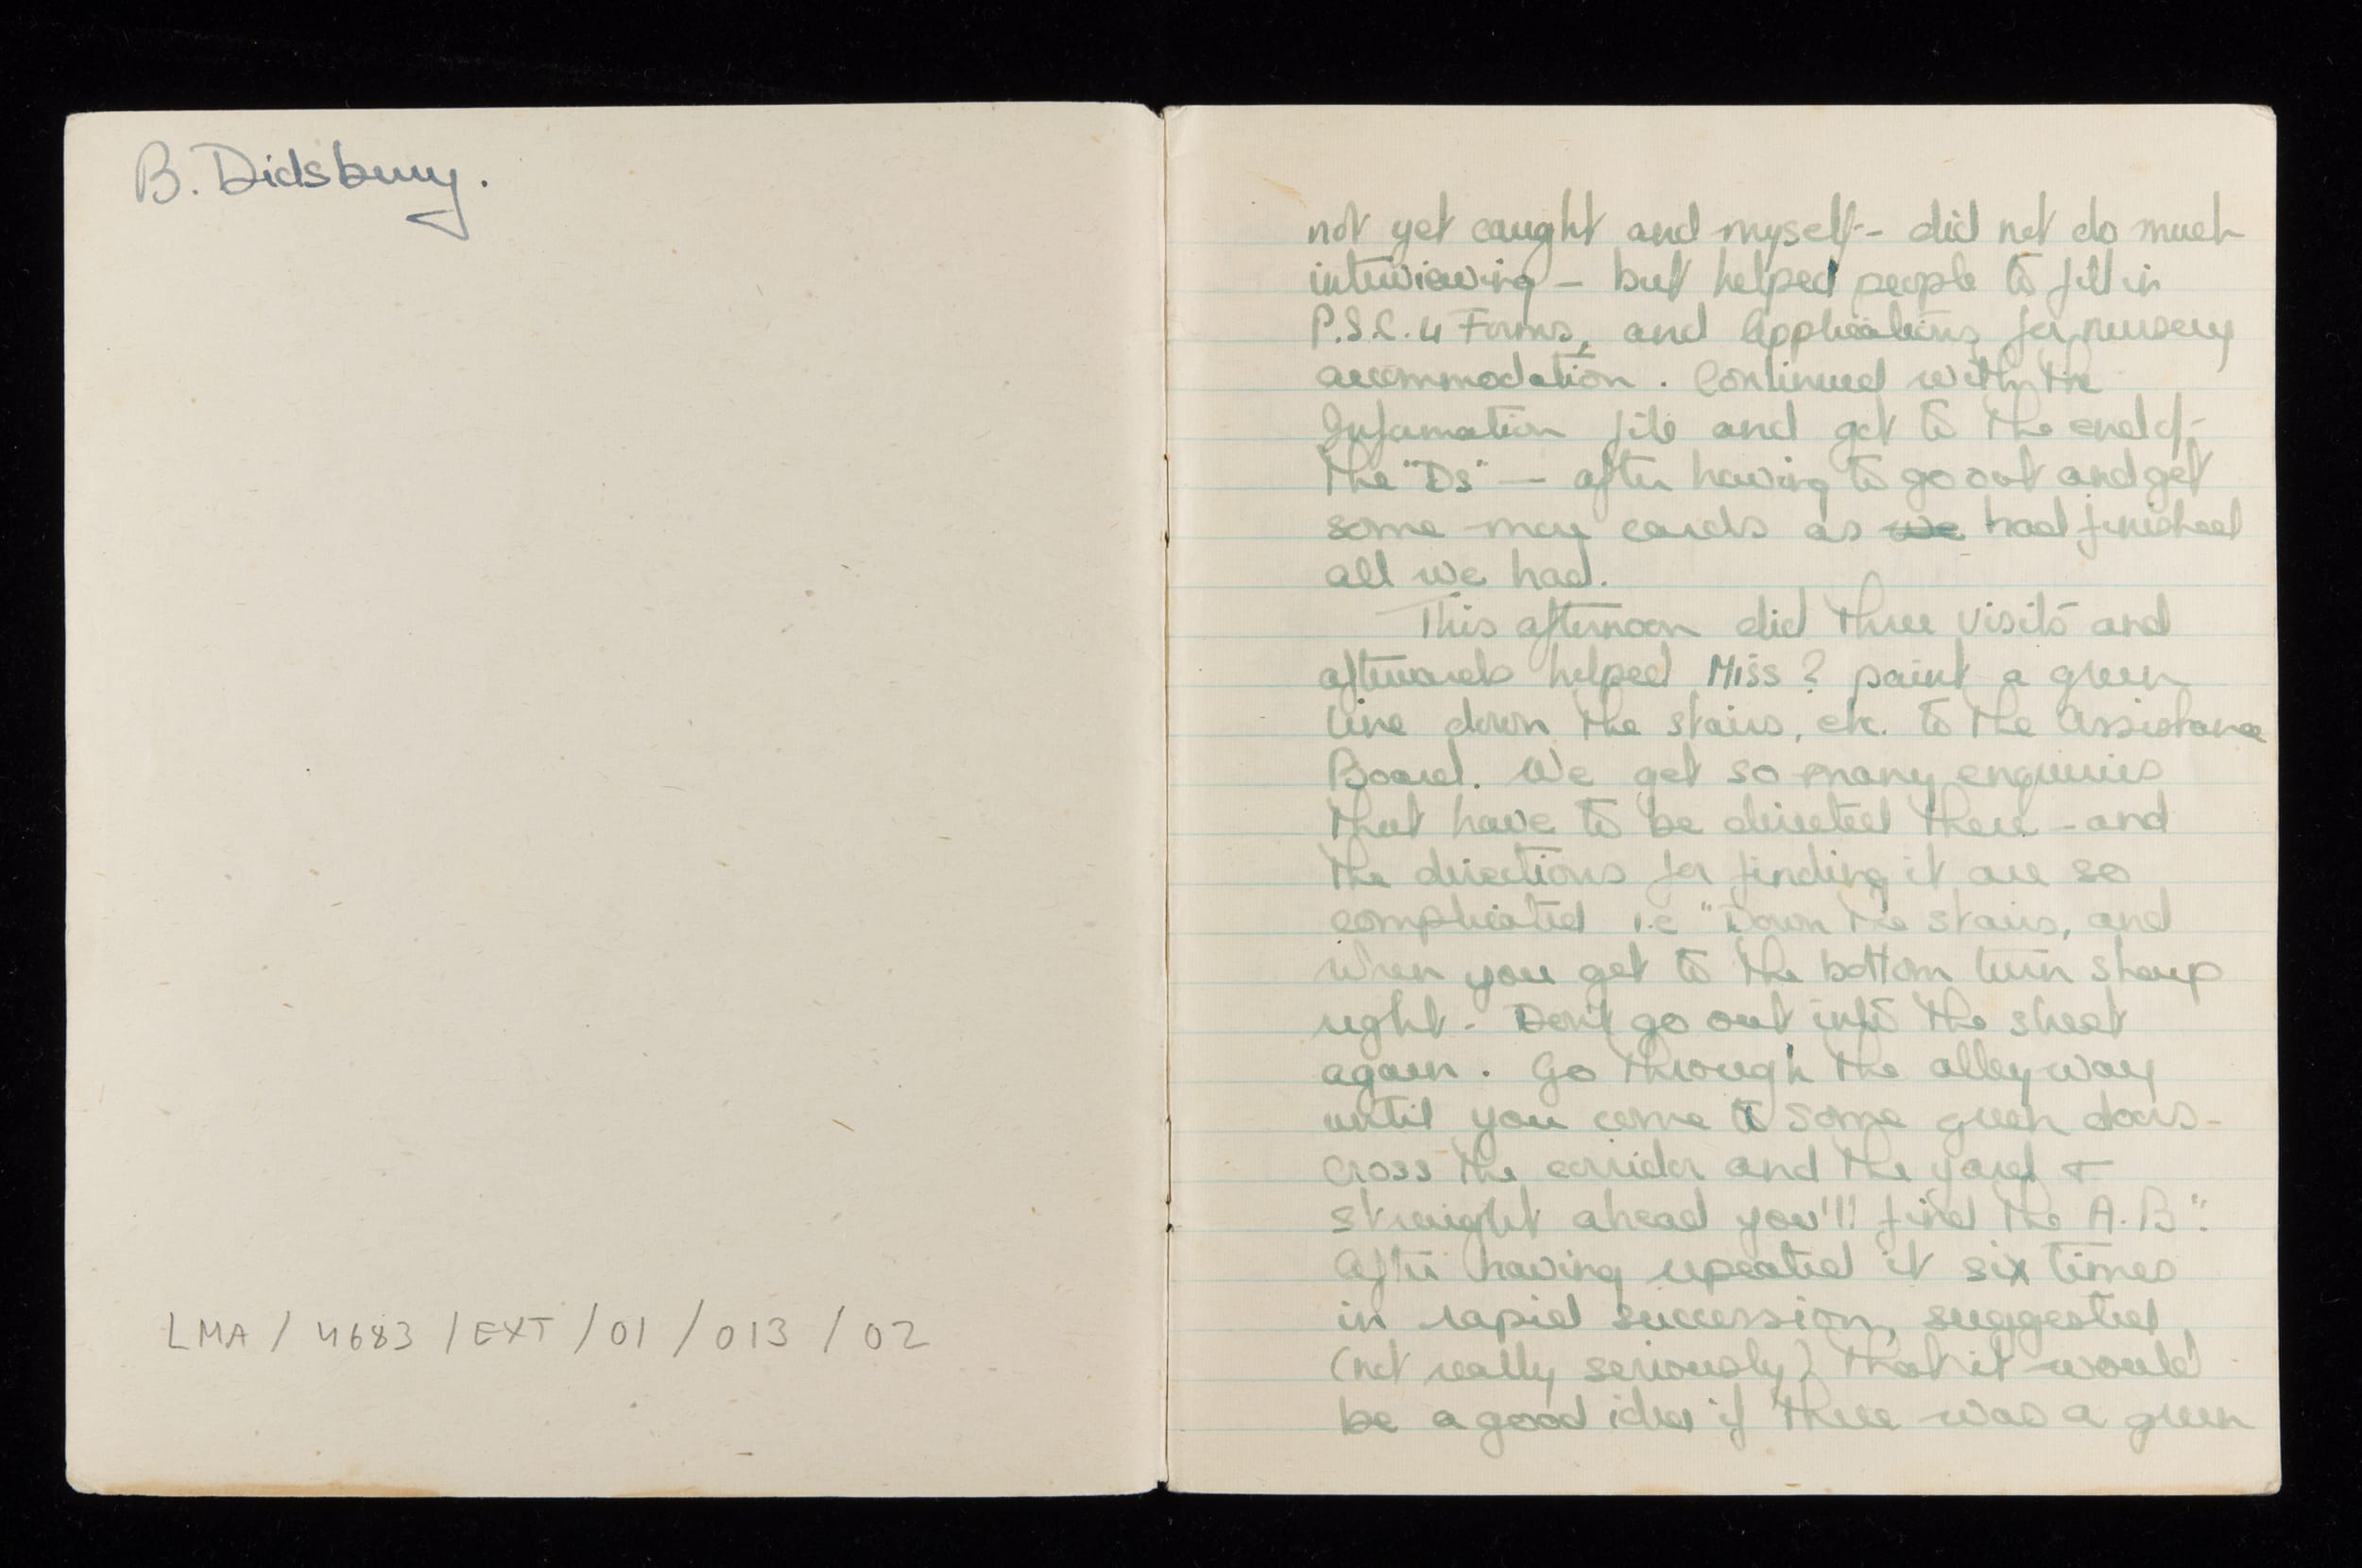 B. Didsbury.
LMA / 4683 / EXT / 01 / 013 / 02
not yet caught and myself - did not do much
interviewing - but helped people to fill in
P.S.C. 4 Forms, and Applications for nursery
accommodation. Continued with the
Information file and got to the end of
the "Ds" — after having to go out and get
some more cards as we had finished
all we had.
This afternoon did three visits and
afterwards helped Miss ? paint a green
line down the stairs, etc. to the Assistance
Board. We get so many enquiries
that have to be directed there - and
the directions for finding it are so
complicated i.e "Down the stairs, and
when you get to the bottom turn sharp
right - Don't go out into the street
again. Go through the alleyway
until you come to some green doors -
Cross the corridor and the yard &
straight ahead you'll find the A.B".
After having repeated it six times
in rapid succession, suggested
(not really seriously) that it would
be a good idea if there was a green